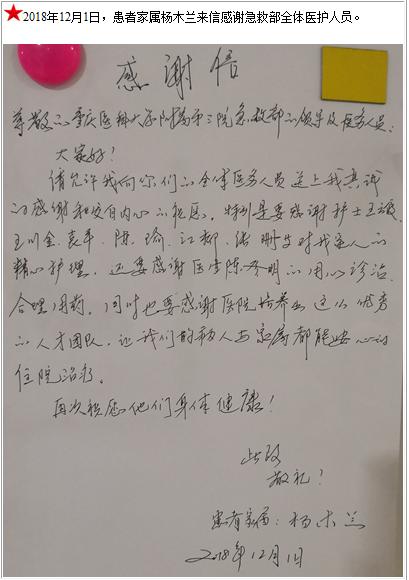 ★2018年12月1日，患者家属杨木兰来信感谢急救部全体医护人员。
感谢信
尊敬的重庆医科大学附属第三院急救部的领导及医务人员：
大家好！
请允许我向你们的全体医务人员送上我真诚
的感谢和发自内心的祝愿。特别是要感谢护士王
王川金、袁平、陈瑜、江都、张 对我家人的
精心护理。还要感谢医生陈 明的用心诊治
合理用药。同时也要感谢医院培养出这么优秀
的人才团队，让我们的病人与家属都能安心的
住院治疗。
再次祝愿他们身体健康！
此致
敬礼！
患者家属：杨木兰
2018年12月1日